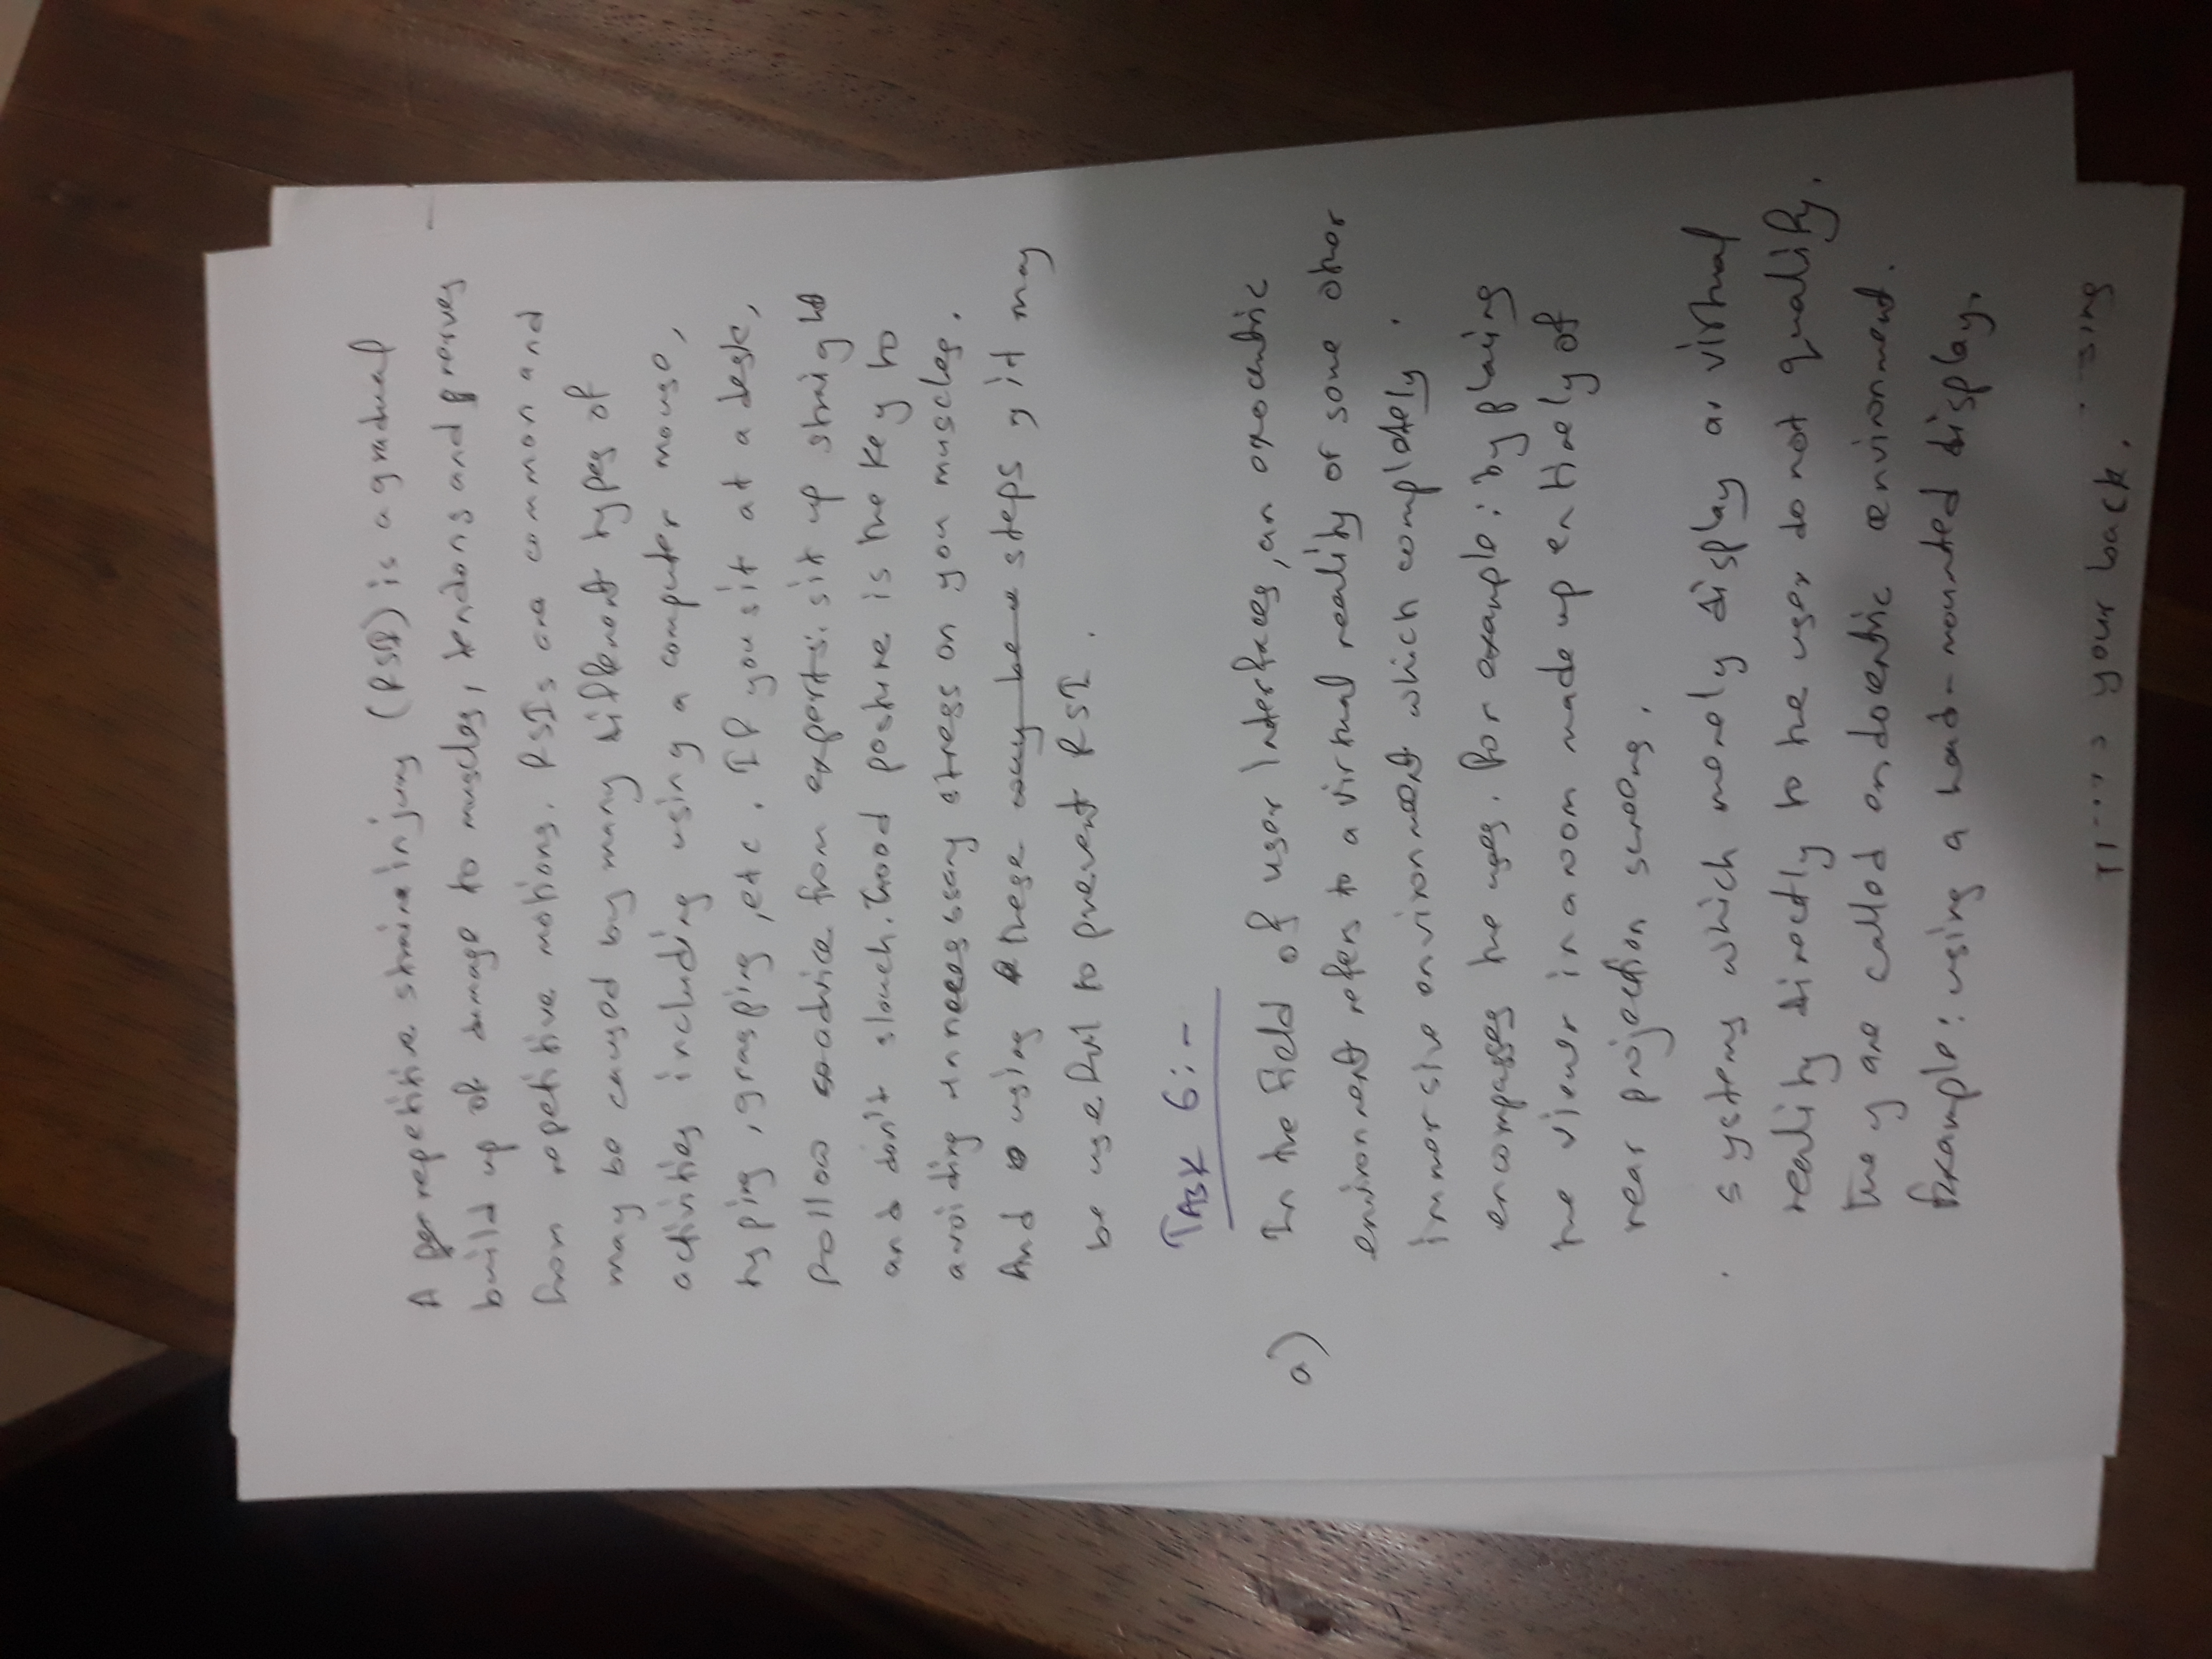 A repetitive straine injury (RSI) is a gradual
build up of damage to muscles, tendons and nerves
from repetitive motions. RSIs are common and
may be caused by many different types of
activities including using a computer mouse,
typing, grasping, etc. If you sit at a desk,
follow advice from experts: sit up straight
and don't slouch. Good posture is the key to
avoiding unnecessary stress on you muscles.
And using these way be steps, it may
be useful to prevent RSI.
TASK 6:-
a) In the field of user Interfaces, an exocentric
environment refers to a virtual reality or some other
immersive environment which completely
encompasses the uses. For example: by placing
the viewer in a room made up entirely of
rear projection screens.
systems which merely display a virtual
reality directly to the user do not qualify.
They are called endocentric environment.
Example: using a head-mounted display.
your back.